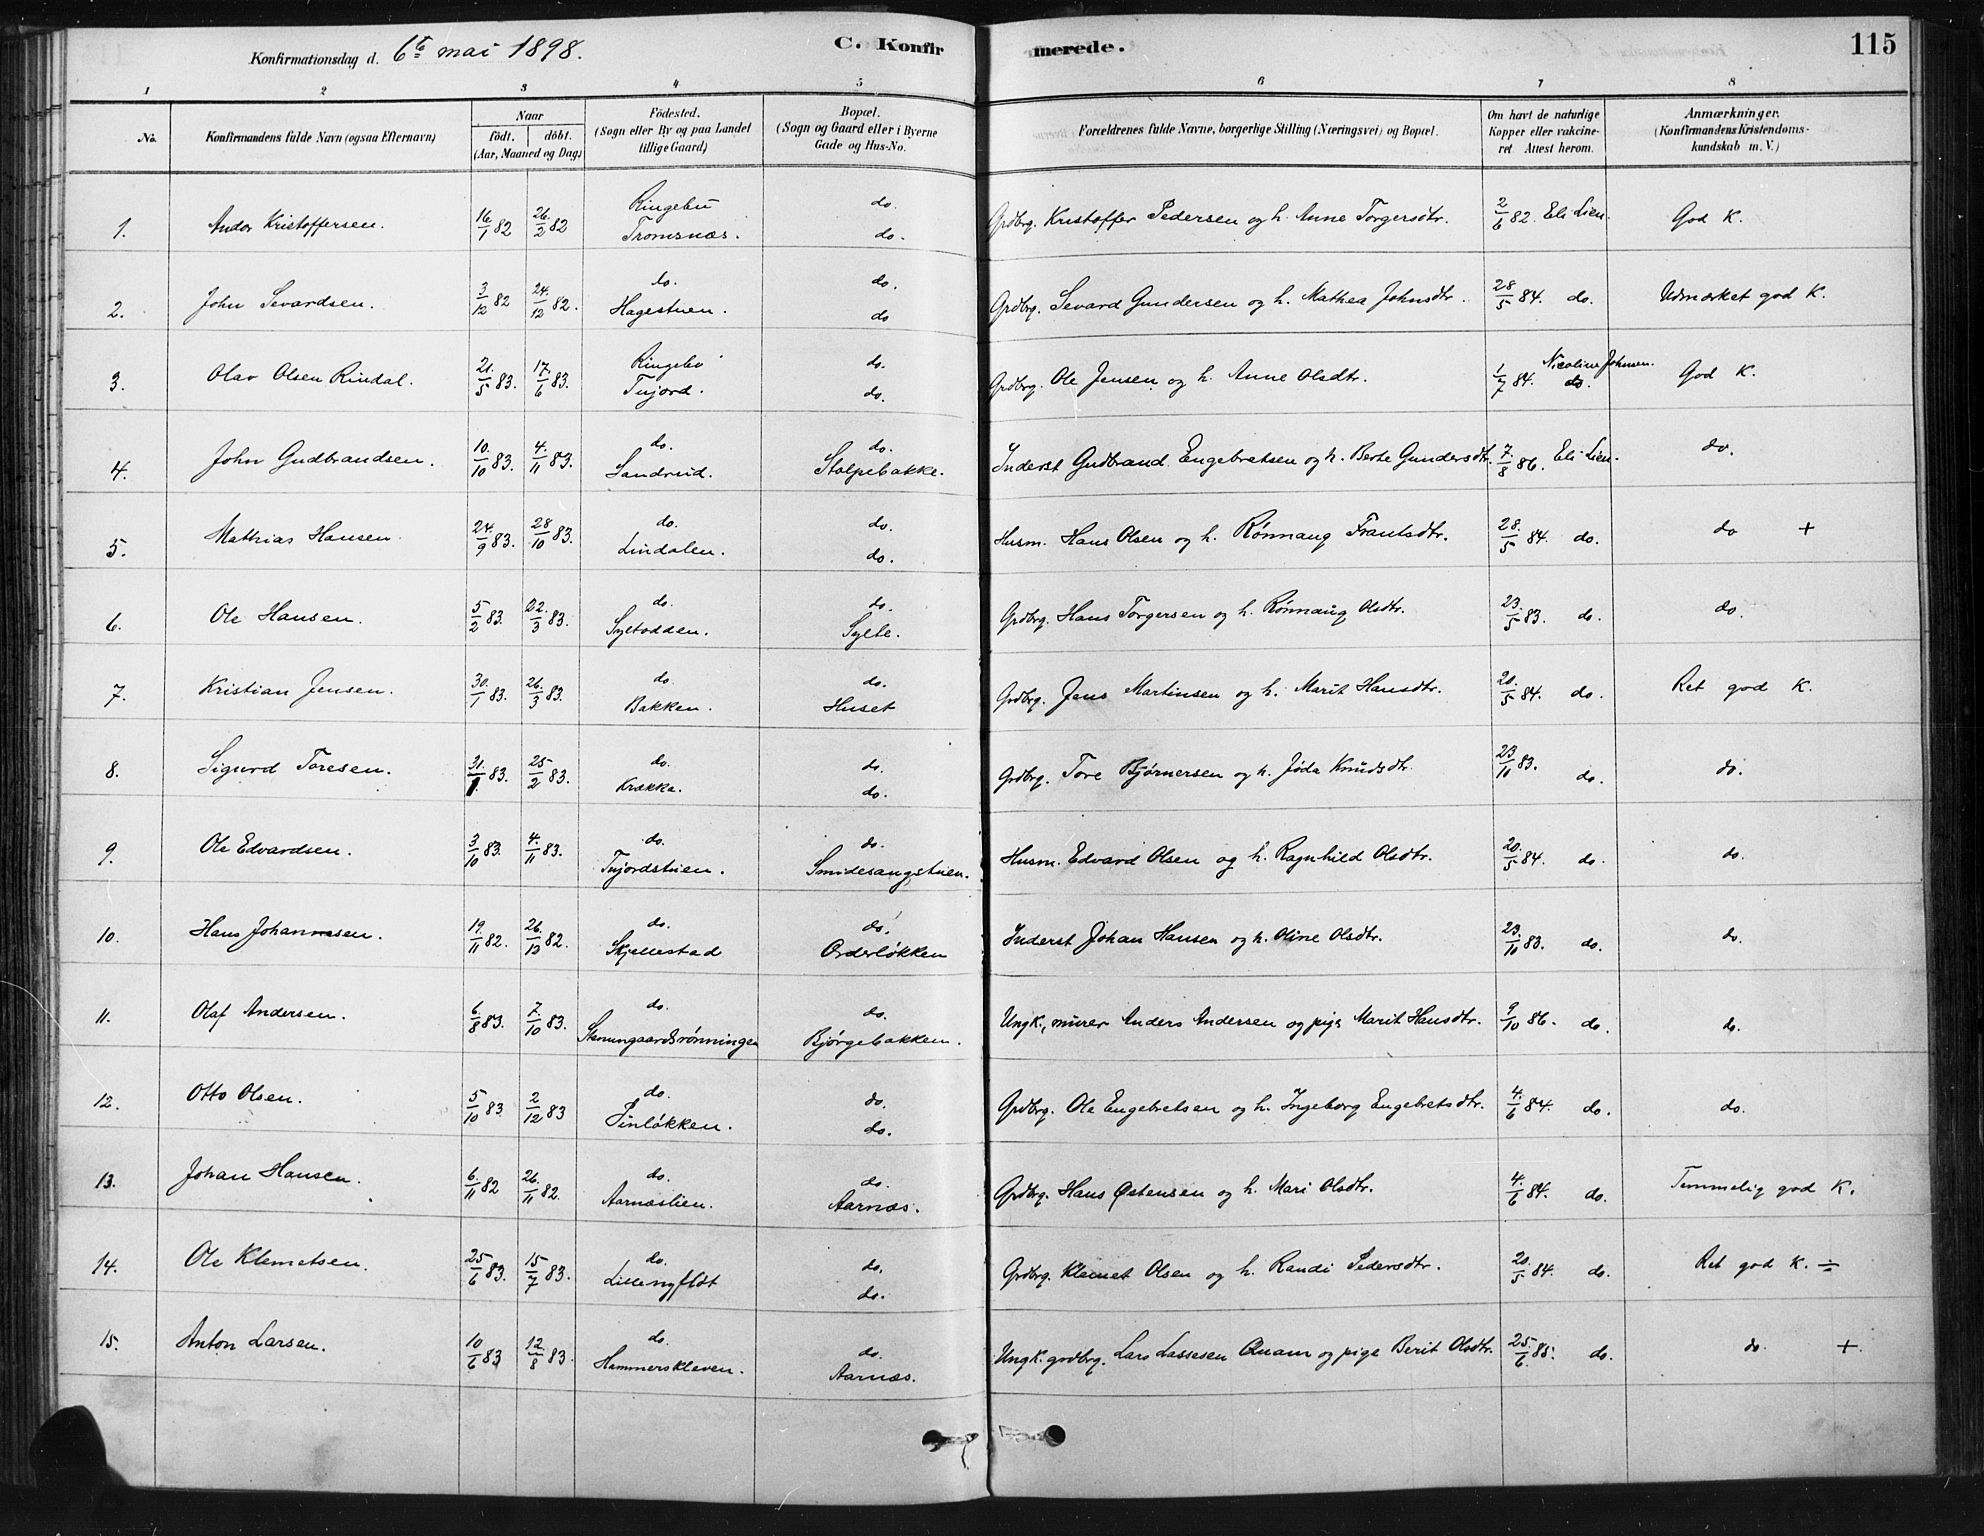 Konfirmationsdag d. 6te mai 1898. C. Konfirmerede. 115
1 2 3 4 5 6 7 8
No. Konfirmandens fulde Navn (ogsaa Efternavn) Naar født. døbt. (Aar, Maaned og Dag) Fødested. (Sogn eller By og paa Landet tillige Gaard) Bopæl. (Sogn og Gaard eller i Byerne Gade og Hus-No. Forældrenes fulde Navne, borgerlige Stilling (Næringsvei) og Bopæl. Om havt de naturlige Kopper eller vakcineret Attest herom. Anmærkninger. (Konfirmandens Kristendomskundskab m. V.)
1. Andor Kristoffersen. 16/1 82 26/2 82 Ringebu Tromsnæs. do. do. Grdbrg. Kristoffer Pedersen og h. Anne Torgersdtr. 2/6 82. Eli Lien. God K.
2. John Sevardsen. 3/12 82 24/12 82. do. Hagestuen. do. do Grdbrg. Sevard Gundersen og h. Mathea Johnsdtr. 28/5 84. do. Udmærket god K.
3. Olav Olsen Rindal. 21/5 83. 17/6 83. Ringebo Tujord. do. do. Grdbrg. Ole Jensen og h. Anne Olsdtr. 1/7 84. Nicoline Johnsen. do. God K.
4. John Gudbrandsen. 10/10 83. 4/11 83. do. Sandrud. do. Stolpebakke. Inderst Gudbrand Engebretsen og h. Berte Gundersdtr. 7/8 86. Eli Lien. do.
5. Mathias Hansen. 24/9 83. 28/10 83. do. Lindalen. do. do. Husm. Hans Olsen og h. Rønnaug Frantsdtr. 28/5 84. do. do +
6. Ole Hansen. 5/2 83. 22/3 83. do. Syltodden. do. Sylte. Grdbrg. Hans Torgersen og h. Rønnaug Olsdtr. 23/5 83. do. do.
7. Kristian Jensen. 30/1 83. 26/3 83. do. Bakken. do. Huset Grdbrg. Jens Martinsen og h. Marit Hansdtr. 20/5 84. do. Ret god K.
8. Sigurd Toresen. 31/1 83. 25/2 83. do. Krække. do. do. Grdbrg. Tore Bjørnersen og h. Jøda Knudsdtr. 23/11 83. do. do.
9. Ole Edvardsen. 3/10 83. 4/11 83. do. Tujordstuen. do. Smidesangstuen. Husm. Edvard Olsen og h. Ragnhild Olsdtr. 20/5 84. do. do.
10. Hans Johannesen. 19/11 82. 26/13 82. do. Skjellestad do. Orderløkken Inderst Johan Hansen og h. Oline Olsdtr. 23/11 83. do. do.
11. Olaf Andersen. 6/8 83. 7/10 83. do. Stenungaardsrønningen do. Bjørgebakken. Ungk., murer Anders Andersen og pige Marit Hansdtr. 9/10 86. do. do.
12. Otto Olsen. 5/10 83. 2/12 83 do. Tinløkken. do. do. Grdbrg. Ole Engebretsen og h. Ingeborg Engebretsdtr. 4/6 84. do. do.
13. Johan Hansen. 6/11 82 26/11 82. do. Aarnæslien. do. Aarnæs. Grdbrg. Hans Østensen og h. Mari Olsdtr. 4/6 84. do. Temmelig god K.
14. Ole Klemetsen. 25/6 83. 15/7 83. do. Lillenyfløt do. do. Grdbrg. Klemet Olsen og h. Randi Pedersdtr. 20/5 84. do. Ret god K. ÷
15. Anton Larsen. 10/6 83 12/8 83. do. Hammerskleven. do. Aarnæs. Ungk. grdbrg. Lars Lassesen Quam og pige Berit Olsdtr. 25/6 85. do. do. +